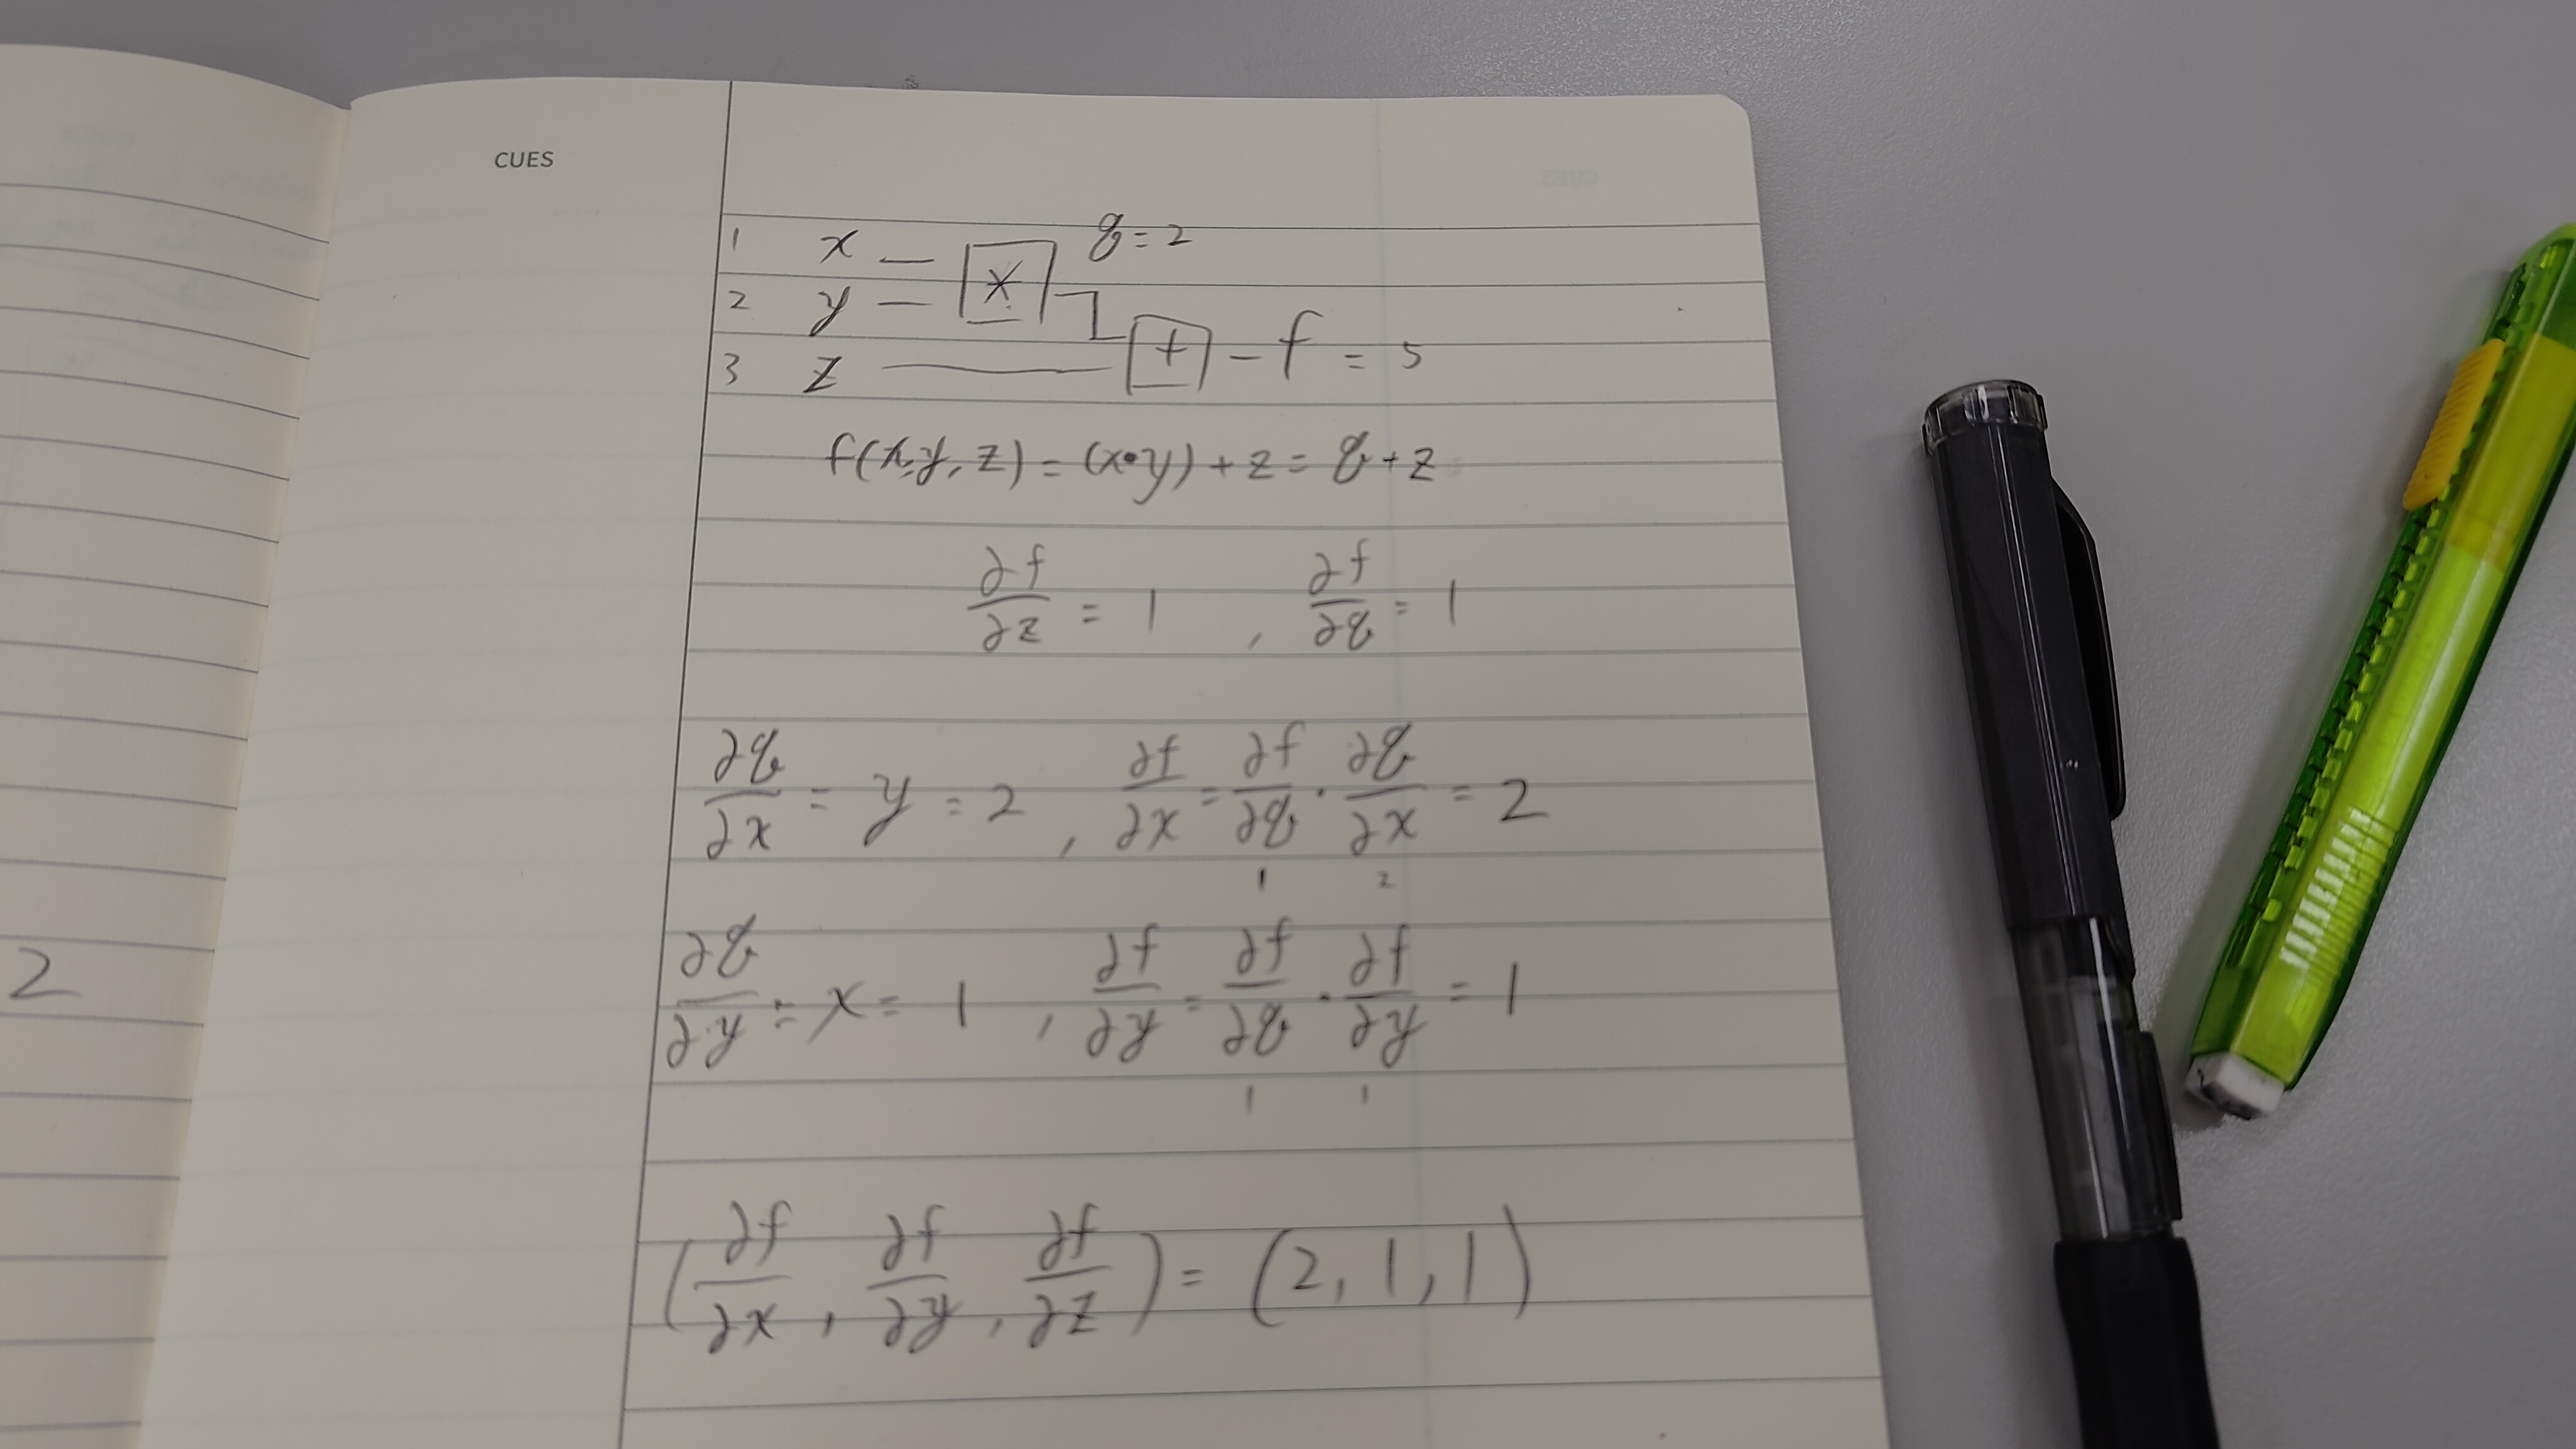 CUES
1 x — [×] q = 2
2 y —
3 z — [+] – f = 5
f(x, y, z) = (x•y) + z = q + z
∂f/∂z = 1 , ∂f/∂q = 1
∂q/∂x = y = 2 , ∂f/∂x = ∂f/∂q · ∂q/∂x = 2
1 2
∂q/∂y = x = 1 , ∂f/∂y = ∂f/∂q · ∂f/∂y = 1
1 1
(∂f/∂x , ∂f/∂y , ∂f/∂z) = (2, 1, 1)
2